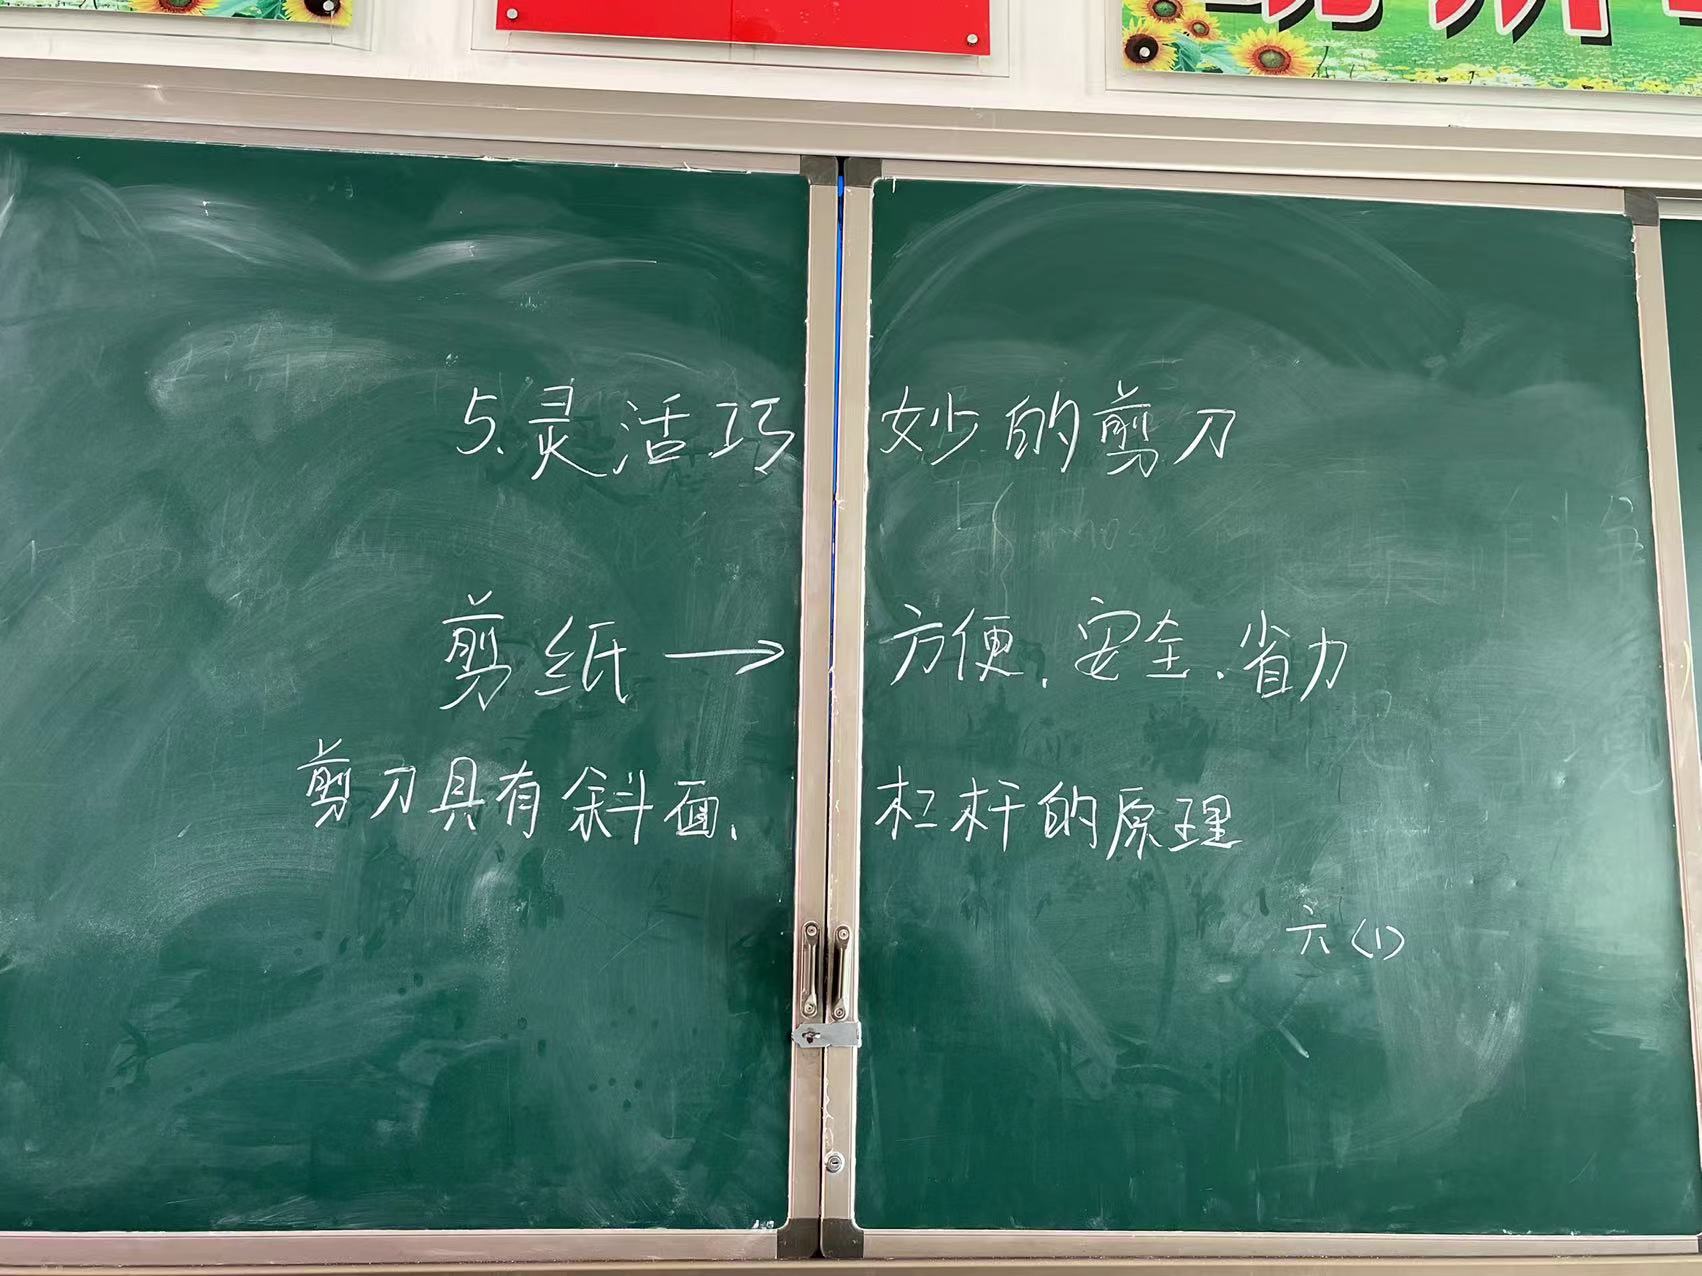 5.灵活巧妙的剪刀
剪纸→方便、安全、省力
剪刀具有斜面、杠杆的原理
六(1)